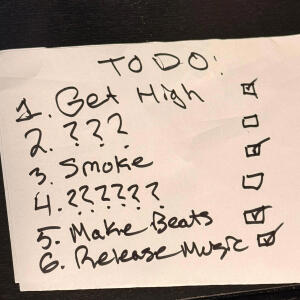 TO DO:
1. Get High ☑
2. ??? ☐
3. Smoke ☑
4. ?????? ☐
5. Make Beats ☑
6. Release Music ☑